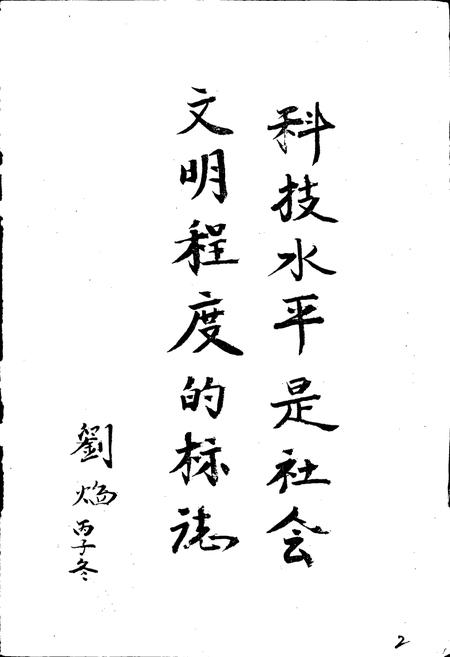 科技水平是社会
文明程度的标誌
劉焔
丙子冬
2